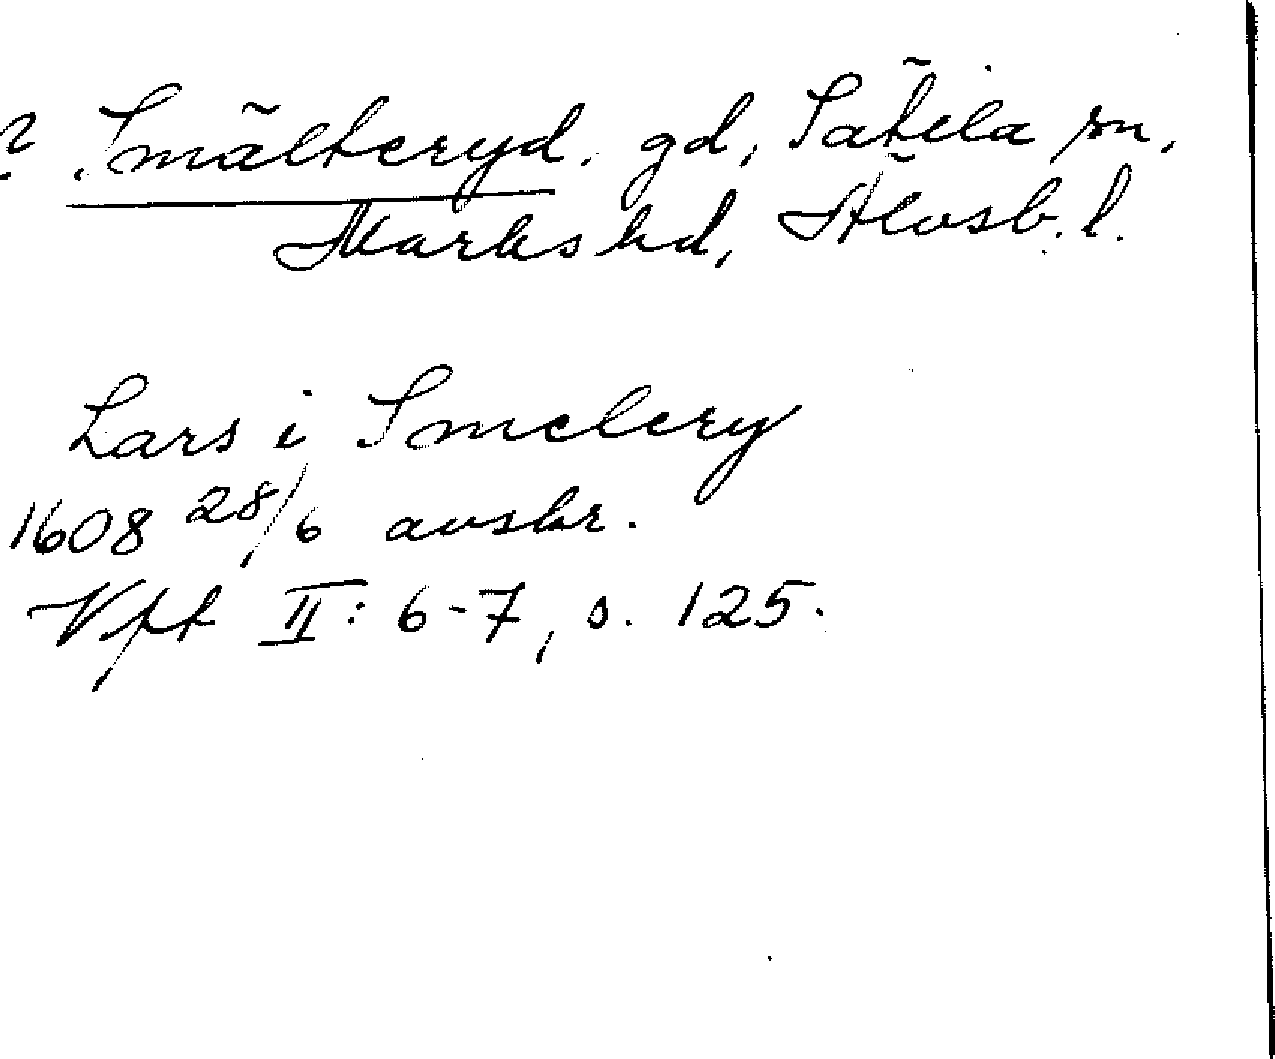 ? Smälteryd. gd, Sätila sn,
Marks hd, Älvsb. l.
Lars i Smelery
1608 28/6 avskr.
Vpt II: 6-7, s. 125.